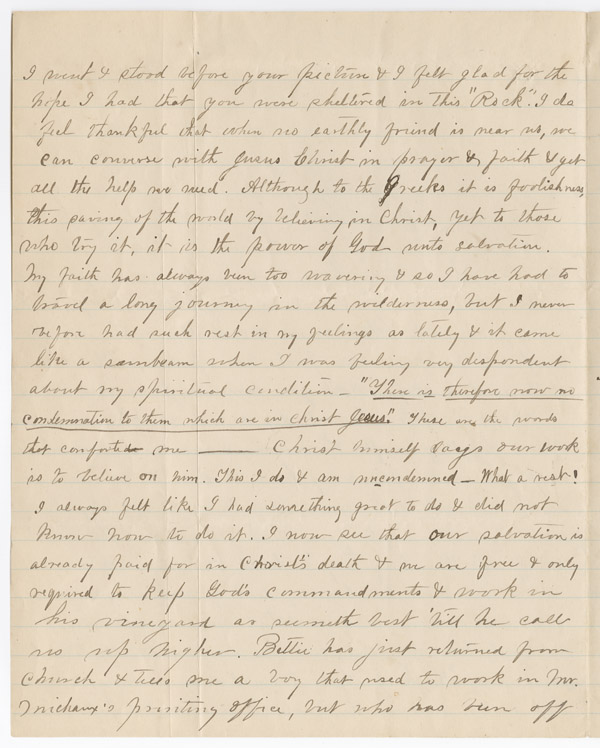 I went & stood before your picture & I felt glad for the
hope I had that you were sheltered in this "Rock". I do
feel thankful that when no earthly friend is near us, we
can converse with Jesus Christ in prayer & faith & get
all the help we need. Although to the Greeks it is foolishness,
this saving of the world by believing in Christ, yet to those
who try it, it is the power of God unto salvation.
My faith has always been too wavering & so I have had to
travel a long journey in the wilderness, but I never
before had such rest in my feelings as lately & it came
like a sunbeam when I was feeling very despondent
about my spiritual condition – "There is therefore now no
condemnation to them which are in Christ Jesus". These are the words
that comforted me —— Christ himself says our work
is to believe on him. This I do & am uncondemned – What a rest!
I always felt like I had something great to do & did not
know how to do it. I now see that our salvation is
already paid for in Christ's death & we are free & only
required to keep God's commandments & work in
his vineyard as seemeth best 'till he call
us up higher. Bettie has just returned from
Church & tells me a boy that used to work in Mr.
Michaux's printing office, but who has been off